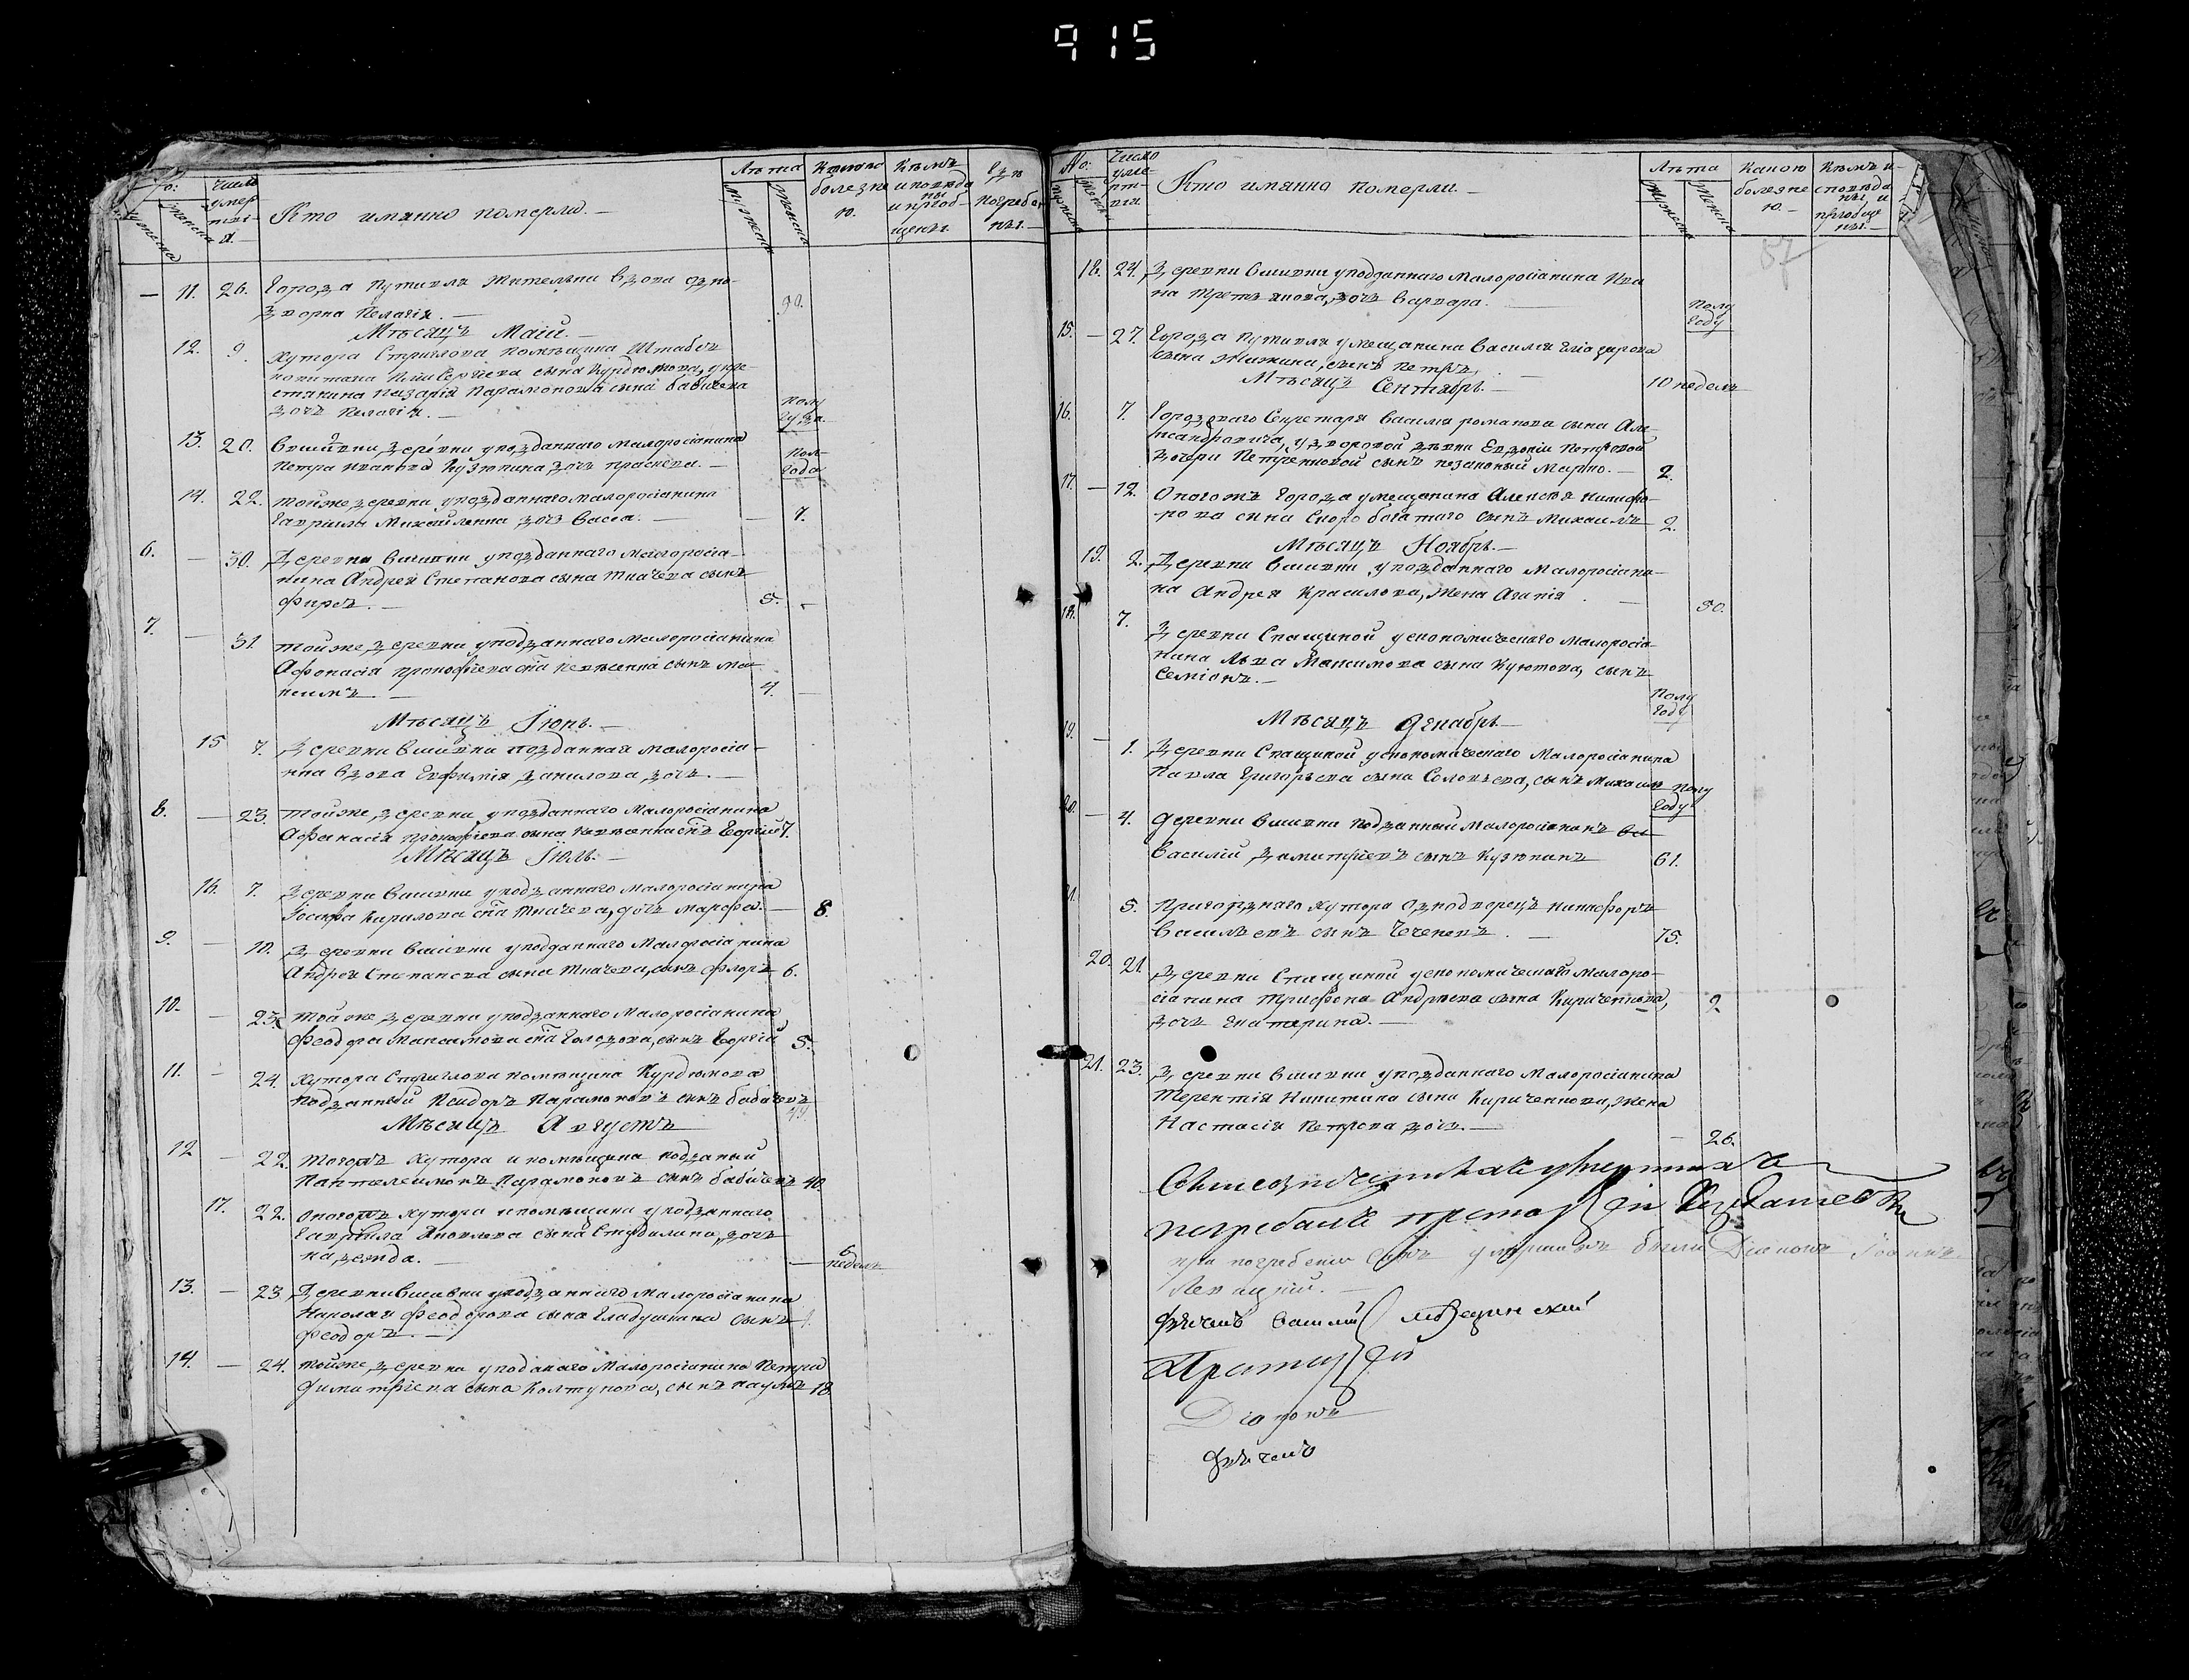 915
No:
Число умертвія
Кто имянно померли.—
Лѣта
Какою болезнею.
Кѣмъ исповѣданы и пріобщены.
Гдѣ погребены.
мужеска
женска
— 11. 26. Города Путивля жительки вдова одно-
дворка Пелагія.— 90.
Мѣсяцъ Маій.—
12. 9. хутора Стриглова помѣщика Штабсъ
капитана Сергѣева сына Курдюмова, у кре-
стянина Назарія Парамонова сына Бабичева
дочь Пелагія.— полугода.
13. 20. Вшивки деревни у подданнаго малоросіанина
Петра Иванова Кузюкина дочь праскева.— Полгода
14. 22. тойже деревни у подданнаго малоросіанина
Гаврилы Михайленка дочь Васса.— — 7.
6. — 30. Деревни Вшивки у подданнаго малоросіа-
нина Андрея Степанова сына Ткачева сынъ
Фирсъ.— 5.
7. — 31 тойже деревни у подданнаго малоросіанина
Афонасія прокофьева сна сынъ Ма-
ксимъ.— 4.
Мѣсяцъ Іюнь.—
15 7. Деревни Вшивки подданная малоросіа-
нка вдова Евфимія Данилова дочь.—
8. — 23. тойже деревни у подданнаго Малоросіанина
Афанасія прокофіева сына снъ Георгій 7.
Мѣсяцъ Іюль.—
16. 7. Деревни Вшивки у подданнаго малоросіанина
Іосифа Кирилова сна Ткачева, дочь марфа.— 8.
9. — 10. Деревни Вшивки у подданнаго Малоросіанина
Андрея Степанова сына Ткачева, сынъ Флоръ 6.
10. — 23. тойже деревни у подданнаго Малоросіанина
Феодора Максимова сна Голодова, сынъ Георгій 5.
11. — 24. хутора Стриглова помѣщика Курдюмова
подданный Исидоръ Парамоновъ сынъ бабичевъ
Мѣсяцъ Августъ
12 — 22. тогожъ хутора и помѣщика подданый
Пантелеимонъ Парамоновъ сынъ бабичевъ 40.
17. 22. оногожъ хутора и помѣщика у подданнаго
Гаврыла Яковлева сына дочь
надежда.— — недель
13. — 23 Деревни Вшивки у подданнаго малоросіанина
Николая Феодорова сына Гладушкина сынъ
Феодоръ.—
14. — 24. тойже деревни у подданаго Малоросіанина Петра
Димитріева сына Колтукова, сынъ наумъ 18.
No:
Число умертвія
Кто имянно померли.—
Лѣта
Какою болезнею.—
Кѣмъ исповѣданы и пріобщены.—
57
18. 24. Деревни Вшивки у подданнаго Малоросіанина Ива-
на Третьякова, дочь Варвара.— Полугоду
15. — 27. Города Путивля у мещанина Василія
сына Жижина, сынъ Петръ. 10 недель
Мѣсяцъ Сентябрь.—
16. 7. Городоваго Секретаря Василія романова сына Але-
ксандровича, у дворовой дѣвки Евдокіи Петровой
дочери Петренковой сынъ незаконый Марко.— 2.
17. — 12. Оногожъ Города у мещанина Алексѣя никифо-
рова сына Скоробогатаго сынъ Михаилъ 2.
Мѣсяцъ Ноябрь.—
19. 2. Деревни Вшивки у подданнаго Малоросіани-
на Андрея Красилова, жена Агапія.— 50.
18. 7. Деревни Спащиной у економическаго малоросіа-
нина Льва Максимова сына Куютова, сынъ
Семіонъ.— Полугоду
Мѣсяцъ Декабрь.—
19. — 1. Деревни Спащиной у економическаго Малоросіанина
Павла Григорьева сына Соловьева, сынъ Михаилъ Полугоду
20. — 4. Деревни Вшивки подданный Малоросіанинъ ва
Василій Димитріевъ сынъ Кузюкинъ 61.
21. 5. Пригороднаго хутора Однодворецъ никифоръ
Васильевъ сынъ Чеченевъ.— 75.
20. 21. Деревни Спащиной у економическаго Малоро-
сіанина Трифона Андрѣева сына Кириченкова,
дочь Екатерина.— 2.
21. 23. Деревни Вшивки у подданнаго Малоросіанина
Терентія Никитина сына Кириченкова, жена
Настасія Петрова дочь.— — 26.
умершихъ
погребалъ протоіей
при погребеніи сихъ умершихъ были Діаконъ Іоаннъ
Левицкій.—
Дьячекъ Василій
Протоіей
Діаконъ
Дьячекъ